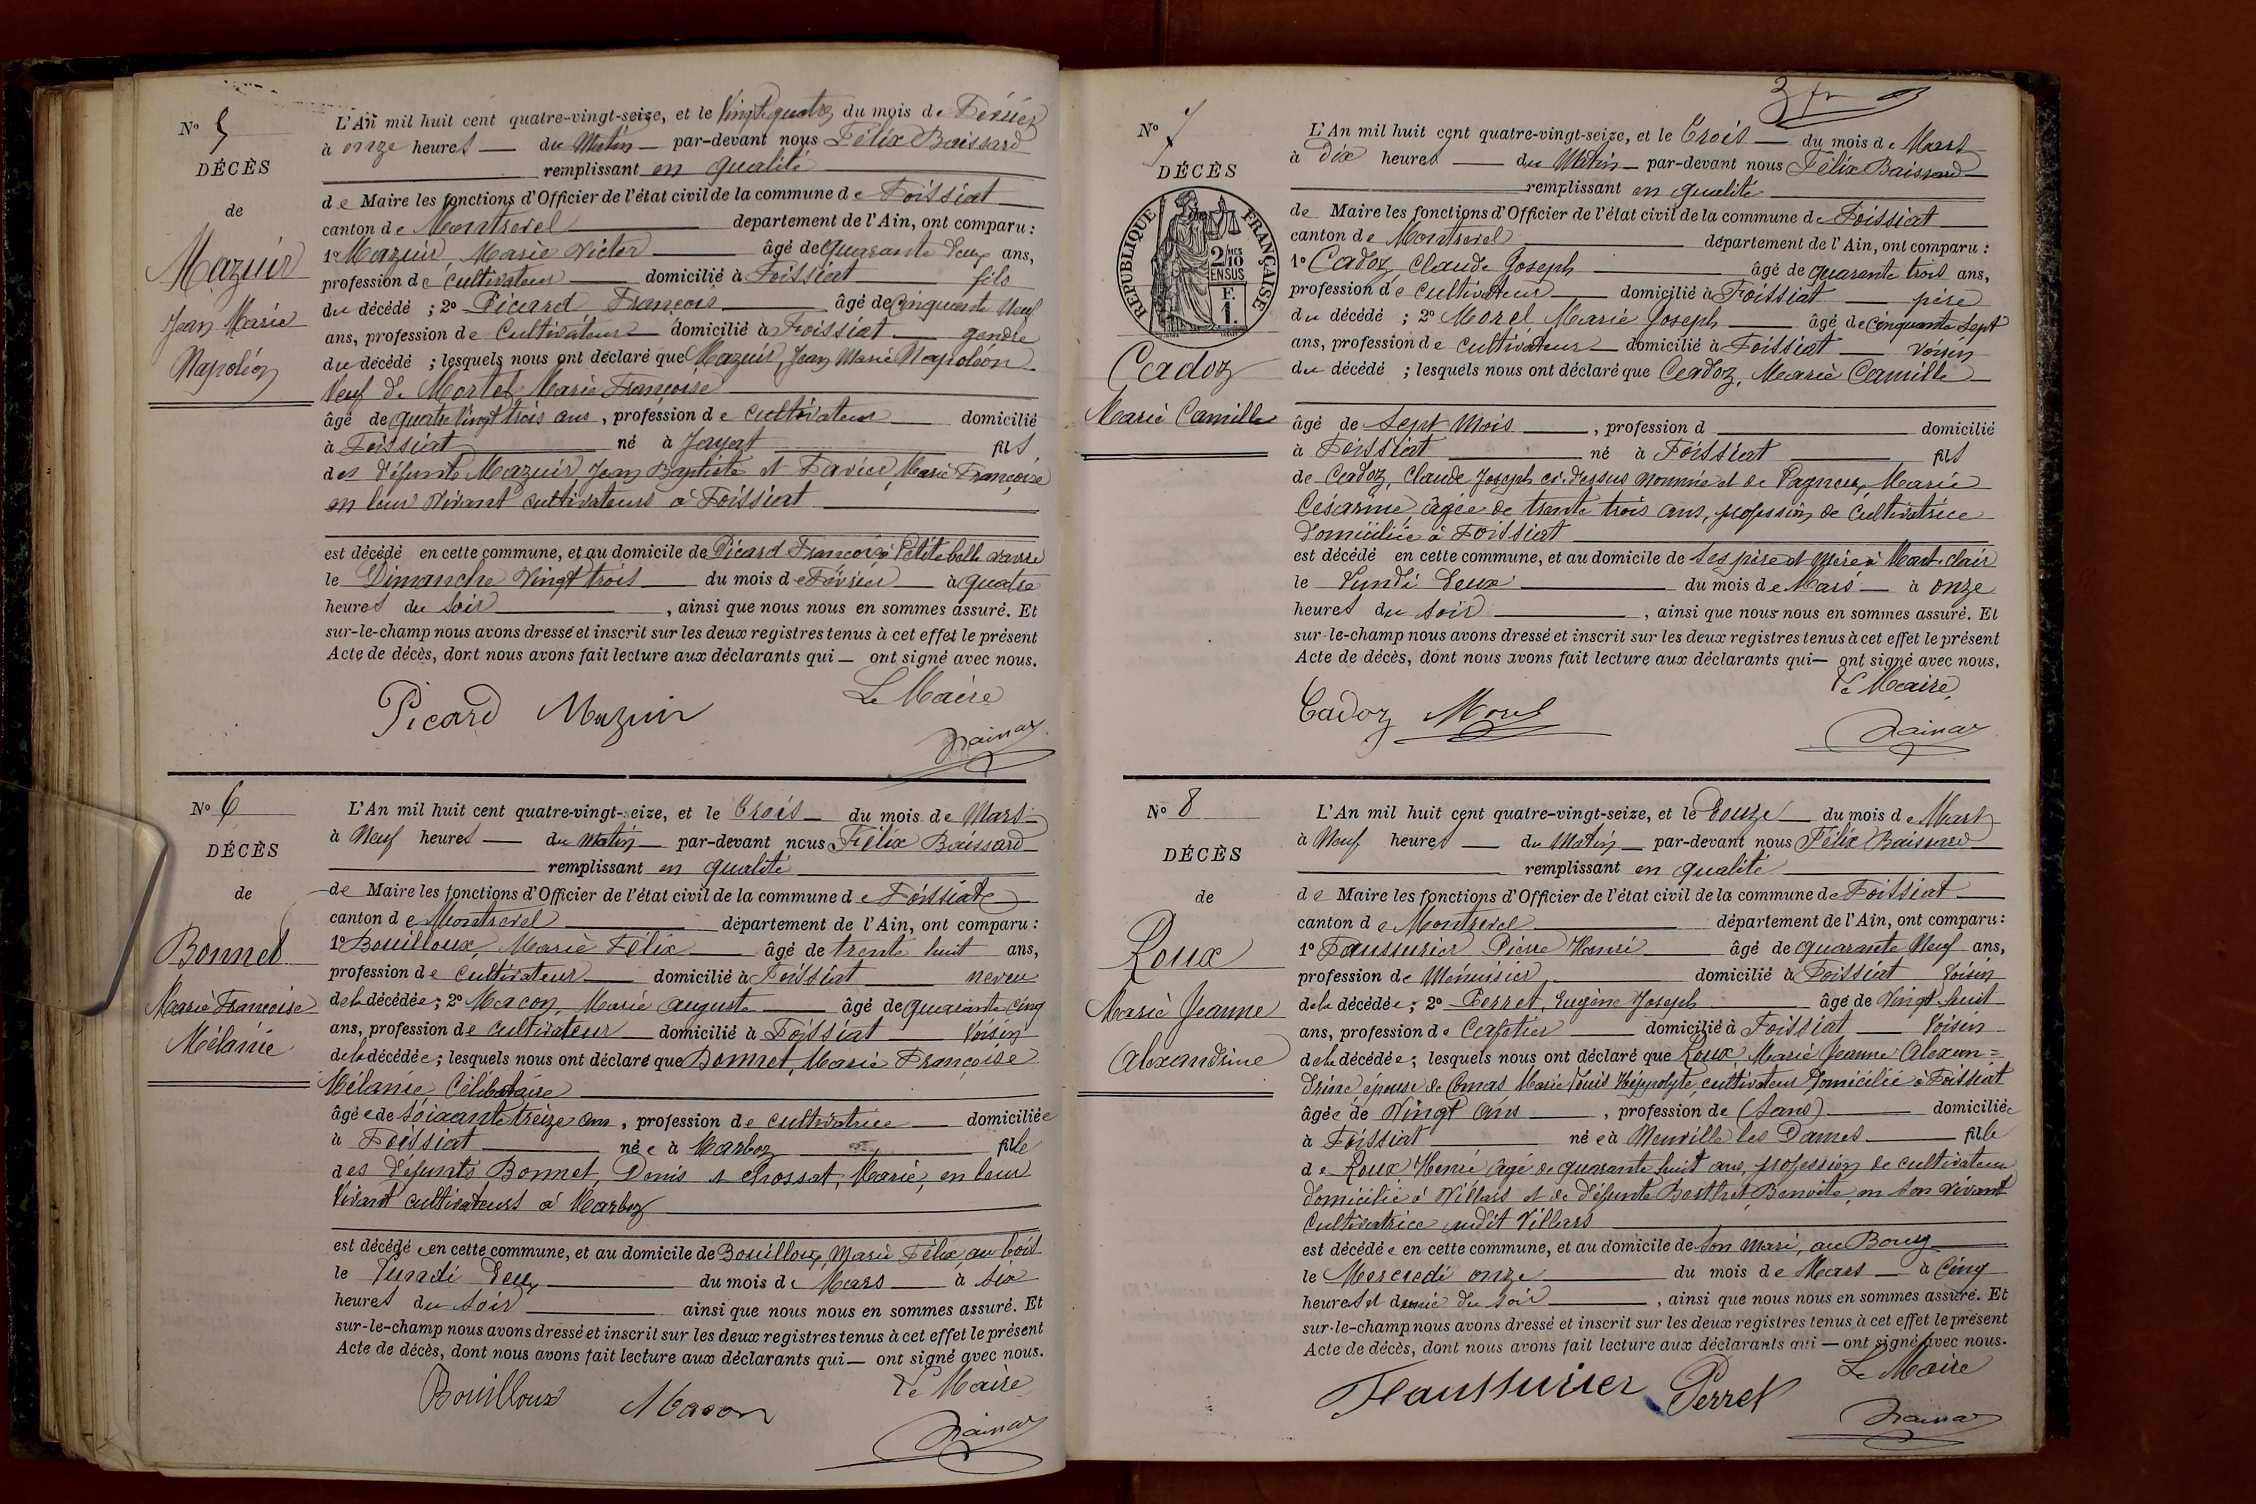 N° 5
DÉCÈS
de
Mazuir
Jean Marie
Napoléon
L'An mil huit cent quatre-vingt-seize, et le Vingt quatre du mois de Février
à onze heures du Matin par-devant nous Félix Baissard
remplissant en qualité
de Maire les fonctions d'Officier de l'état civil de la commune de Foissiat
canton de Montrevel département de l'Ain, ont comparu :
1° Mazuir, Marie Victor âgé de quarante deux ans,
profession de cultivateur domicilié à Foissiat fils
du décédé ; 2° Picard François âgé de cinquante neuf
ans, profession de cultivateur domicilié à Foissiat gendre
du décédé ; lesquels nous ont déclaré que Mazuir, Jean Marie Napoléon
Veuf de Mortel Marie Françoise
âgé de quatre vingt trois ans, profession de cultivateur domicilié
à Foissiat né à Jayat fils
des défunts Mazuir Jean Baptiste et Favier, Marie Françoise
en leur vivant cultivateurs à Foissiat
est décédé en cette commune, et au domicile de Picard François à Petite
le Dimanche Vingt trois du mois de Février à quatre
heures du soir , ainsi que nous nous en sommes assuré. Et
sur-le-champ nous avons dressé et inscrit sur les deux registres tenus à cet effet le présent
Acte de décès, dont nous avons fait lecture aux déclarants qui — ont signé avec nous.
Picard Mazuir Le Maire
N° 6
DÉCÈS
de
Bonnet
Marie Françoise
Mélanie
L'An mil huit cent quatre-vingt-seize, et le Trois du mois de Mars
à Neuf heures du Matin par-devant nous Félix Baissard
remplissant en qualité
de Maire les fonctions d'Officier de l'état civil de la commune de Foissiat
canton de Montrevel département de l'Ain, ont comparu :
1° Bouilloux, Marie Félix âgé de trente huit ans,
profession de cultivateur domicilié à Foissiat neveu
de la décédée ; 2° Macon, Marie august âgé de quarante cinq
ans, profession de cultivateur domicilié à Foissiat Voisin
de la décédée ; lesquels nous ont déclaré que Bonnet, Marie Françoise
Mélanie Célibataire
âgée de soixante treize ans, profession de cultivatrice domiciliée
à Foissiat née à Marboz fille
des défunts Bonnet, Denis et Chossat, Marie, en leur
vivant cultivateurs à Marboz
est décédée en cette commune, et au domicile de Bouilloux, Marie Félix, au bois
le Lundi deux du mois de Mars à six
heures du soir ainsi que nous nous en sommes assuré. Et
sur-le-champ nous avons dressé et inscrit sur les deux registres tenus à cet effet le présent
Acte de décès, dont nous avons fait lecture aux déclarants qui — ont signé avec nous.
Bouilloux Macon Le Maire
3 fr
N° 7
DÉCÈS
RÉPUBLIQUE FRANÇAISE
2/10 EN SUS
F. 1.
Cadoz
Marie Camille
L'An mil huit cent quatre-vingt-seize, et le Trois du mois de Mars
à Dix heures du Matin par-devant nous Félix Baissard
remplissant en qualité
de Maire les fonctions d'Officier de l'état civil de la commune de Foissiat
canton de Montrevel département de l'Ain, ont comparu :
1° Cadoz Claude Joseph âgé de quarante trois ans,
profession de cultivateur domicilié à Foissiat père
du décédé ; 2° Morel Marie Joseph âgé de cinquante sept
ans, profession de cultivateur domicilié à Foissiat Voisin
du décédé ; lesquels nous ont déclaré que Cadoz, Marie Camille
âgé de Sept Mois , profession d domicilié
à Foissiat né à Foissiat fils
de Cadoz, Claude Joseph ci-dessus nommé et de Pagneux, Marie
Césarine âgée de trente trois ans, profession de cultivatrice
domiciliée à Foissiat
est décédé en cette commune, et au domicile de ses père et mère à
le Lundi deux du mois de Mars à onze
heures du soir , ainsi que nous nous en sommes assuré. Et
sur-le-champ nous avons dressé et inscrit sur les deux registres tenus à cet effet le présent
Acte de décès, dont nous avons fait lecture aux déclarants qui — ont signé avec nous,
Cadoz Morel Le Maire
N° 8
DÉCÈS
de
Roux
Marie Jeanne
Alexandrine
L'An mil huit cent quatre-vingt-seize, et le Douze du mois de Mars
à Neuf heures du Matin par-devant nous Félix Baissard
remplissant en qualité
de Maire les fonctions d'Officier de l'état civil de la commune de Foissiat
canton de Montrevel département de l'Ain, ont comparu :
1° Faussurier Pierre Henri âgé de quarante Neuf ans,
profession de Menuisier domicilié à Foissiat Voisin
de la décédée ; 2° Perret, Eugène Joseph âgé de Vingt huit
ans, profession de Cafetier domicilié à Foissiat Voisin
de la décédée ; lesquels nous ont déclaré que Roux Marie Jeanne Alexan=
drine épouse de Comas Marie Louis Hippolyte, cultivateur domicilié à Foissiat
âgée de Vingt ans , profession de (sans) domiciliée
à Foissiat née à Neuville les Dames fille
de Roux Henri âgé de quarante huit ans, profession de cultivateur
domicilié à Villars et de défunte Berthet Benoite, en son vivant
cultivatrice audit Villars
est décédée en cette commune, et au domicile de son mari, au Bourg
le Mercredi onze du mois de Mars à Cinq
heures et demie du soir , ainsi que nous nous en sommes assuré. Et
sur-le-champ nous avons dressé et inscrit sur les deux registres tenus à cet effet le présent
Acte de décès, dont nous avons fait lecture aux déclarants qui — ont signé avec nous.
Faussurier Perret Le Maire